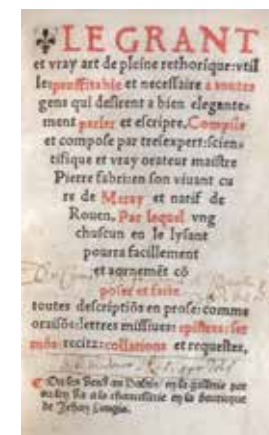 LE GRANT
et vray art de pleine rethorique: vtil
le: proffitable et necessaire a toutes
gens qui desirent a bien elegante-
ment parler et escripre. Compile
et compose par tresexpert: scien-
tifique et vray orateur maistre
Pierre fabri: en son viuant cu
re de Meray et natif de
Rouen. Par lequel vng
chascun en le lysant
pourra facillement
et aornemēt cō
poser et faire
toutes descriptiōs en prose: comme
oraisōs: lettres missiues: epistres: ser
mōs: recitz: collations et requestes.
On les vend au
de Jehan Longis.